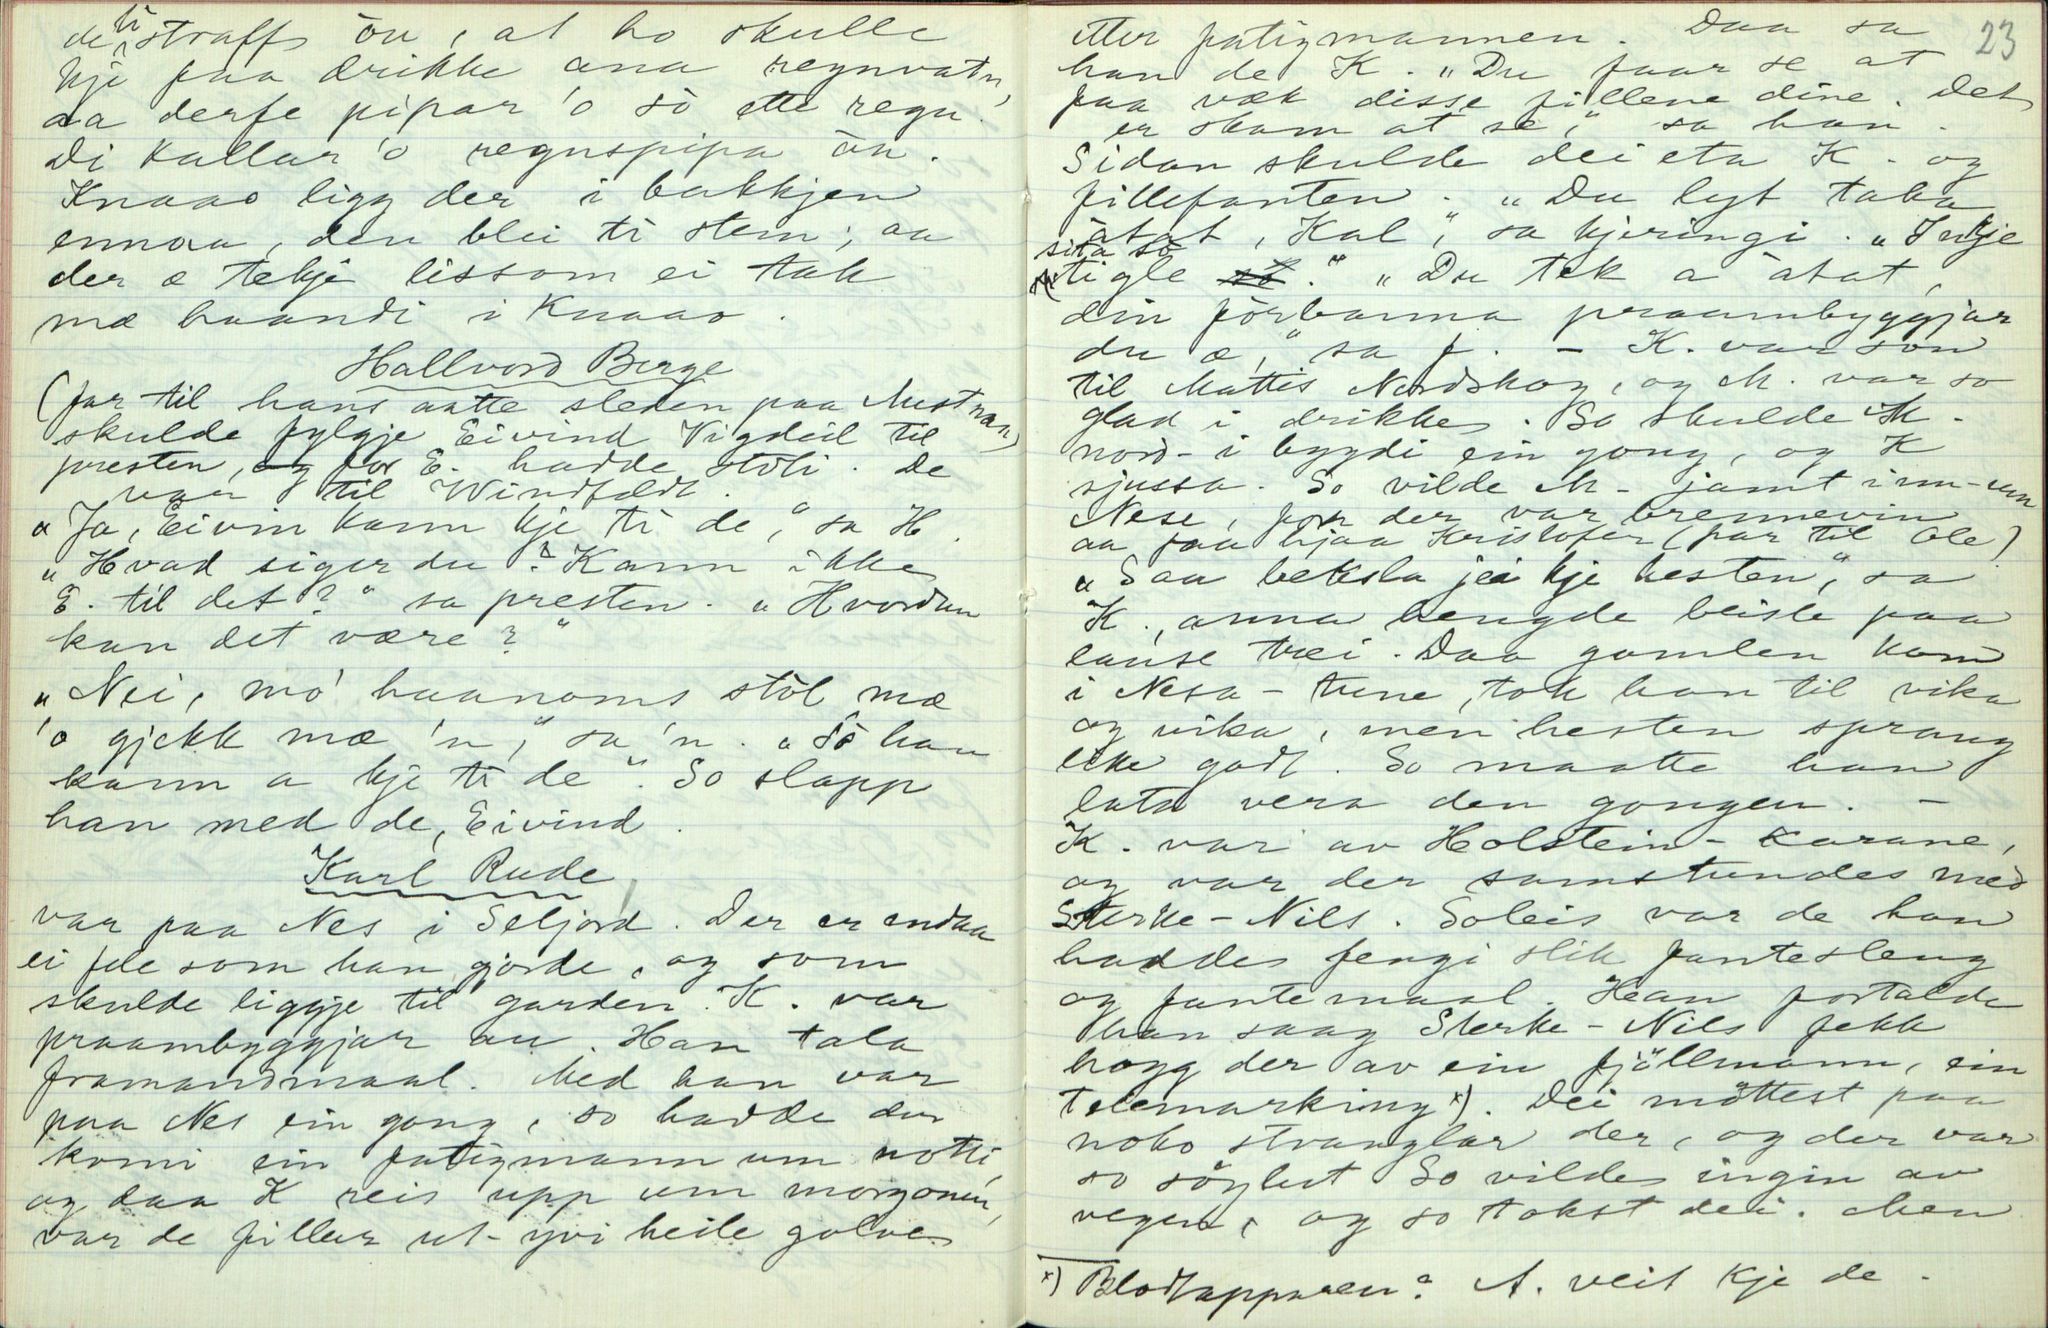 de ti straff òu, at ho skulle
kje faa drikke ana regnvatn,
aa derfe pipar 'o sò ette regn.
Di kallar 'o regnspipa òu.
Knaao ligg der i bakkjen
ennaa, den blei ti stein; aa
der æ tekje lissom ei tak
mæ haandi i Knaao.
Hallvord Berge
(far til hans aatte sleden paa Austman)
skulde fylgje Eivind Vigdeil til
presten, og far E. hadde stoli. De
var til Windfeldt.
„Ja, Eivin kann kje ti de," sa H.
„Hvad siger du? Kann ikke
E. til det?" sa presten. „Hvordan
kan det være?"
„Nei, mo' haanoms stòl mæ
'o gjekk mæ 'n," sa 'n. „Sò han
kann a kje ti de". So slapp
han med de, Eivind.
Karl Rude
var paa Nes i Seljord. Der er endaa
ei fele som han gjorde, og som
skulde liggje til garden. K. var
praambyggjar au. Han tala
framandmaal. Med han var
paa Nes ein gong, so hadde der
komi ein fatigmann um notti,
og daa K reis upp um morgonen,
var de filler ut-yvi heile golve
23
etter fatigmannen. Daa sa
han de K. „Du faar se at
faa væk disse fillene dine. Det
er skam at se," sa han.
Sidan skulde dei eta K. og
fillefanten. „Du lyt taka
àtat, Kal," sa kjeringi. „Inkje
sita so
tigle so." „Du tek a àtat,
dinförbanna praambyggjar
du æ," sa f. – K. var son
til Mattis Nordskog, og M. var so
glad i drikke. So skulde M.
nord-i bygdi ein gong, og K
sjussa. So vilde M– jamt inn-um
Nese, for der var brennevin
aa faa hjaa Kristofer (far til Ole)
„Saa beksla jei kje hesten," sa
K., anna hengde beisle paa
lause træi. Daa gamlen kom
i Nesa-tune, tok han til vika
og vika, men hesten sprang
like godt. So maatte han
lata vera den gongen. –
K. var av Holstein-karane,
og var der samstundes med
Sterke-Nils. Soleis var de han
hadde fengi slik fantesleng
og fantemaal. Han fortalde
han saag Sterke-Nils fekk
hogg der av ein fjöllmann, ein
telemarking x). Dei möttest paa
noko stranglar der, og der var
so söylut So vilde ingin av
vegen, og so tokst dei. Men
x) Blodtapparen? A. veit kje de.